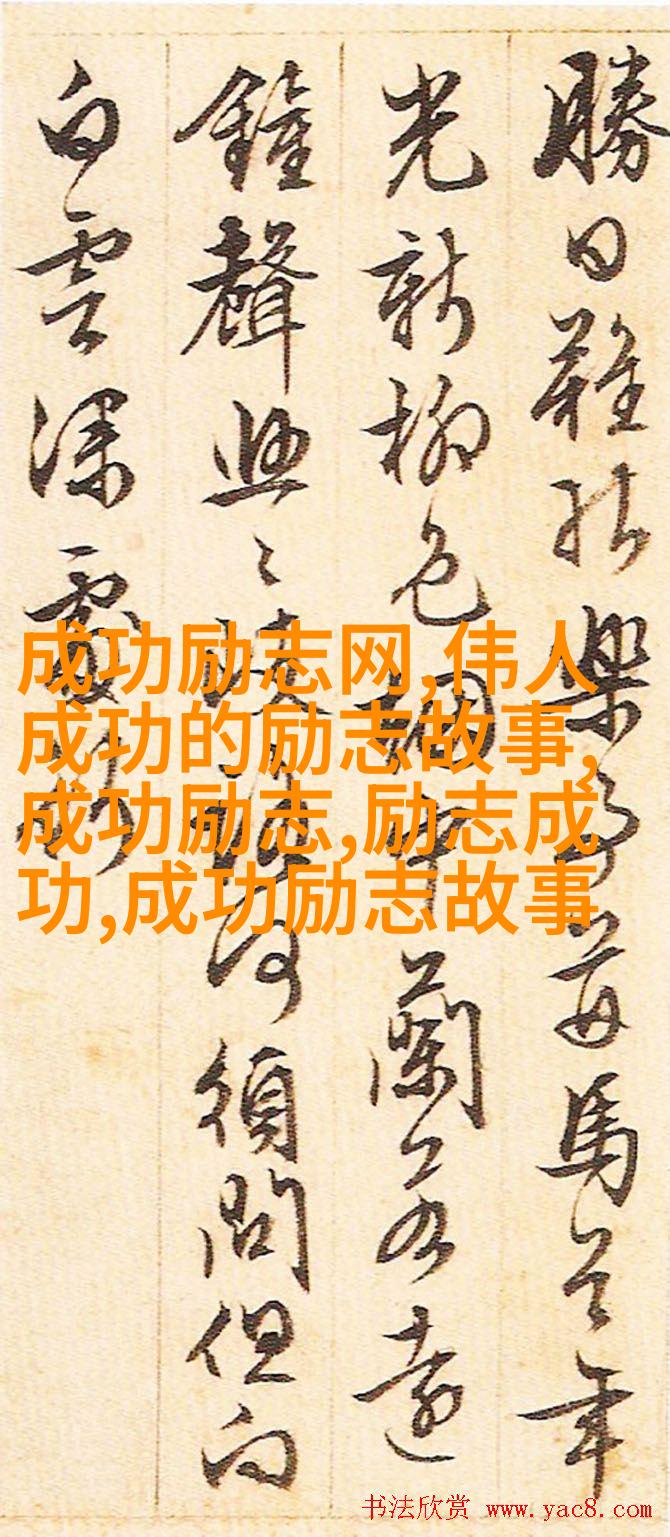 勝日難能樂事 馬首年
光新柳色 中蘭若遠
鐘聲 何須問但向
白雲深處
成功励志网,伟人
成功的励志故事,
成功励志,励志成
功,成功励志故事
书法欣赏 www.yac8.com